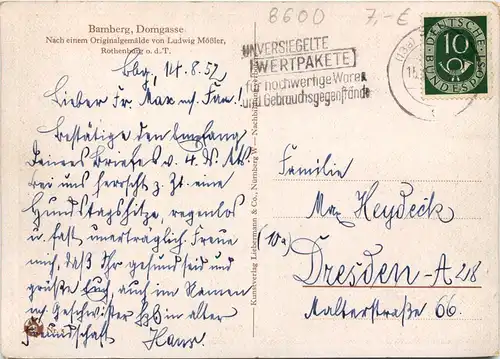 Bamberg, Domgasse
Nach einem Originalgemälde von Ludwig Mößler,
Rothenburg o. d. T.
8600
7,- €
UNVERSIEGELTE
WERTPAKETE
für hochwertige Waren
und Gebrauchsgegenstände
DEUTSCHE
BUNDESPOST
10
Bbg, 14.8.52
Lieber Fr. Max u. Fam.!
Bestätige den Empfang
Deines Briefes v. 4. ds. Mts.
Bei uns herrscht z. Zt. eine
Hundstagshitze, regenlos
u. fast unerträglich. Freue
mich, daß Ihr gesund seid und
grüße Euch auch im Namen
m. Geschwister in alter
Freundschaft Hans.
Kunstverlag Liebermann & Co., Nürnberg W — Nachbildung
Familie
Max Heydeck
(10a)
Dresden-A 28
Malterstraße 66.